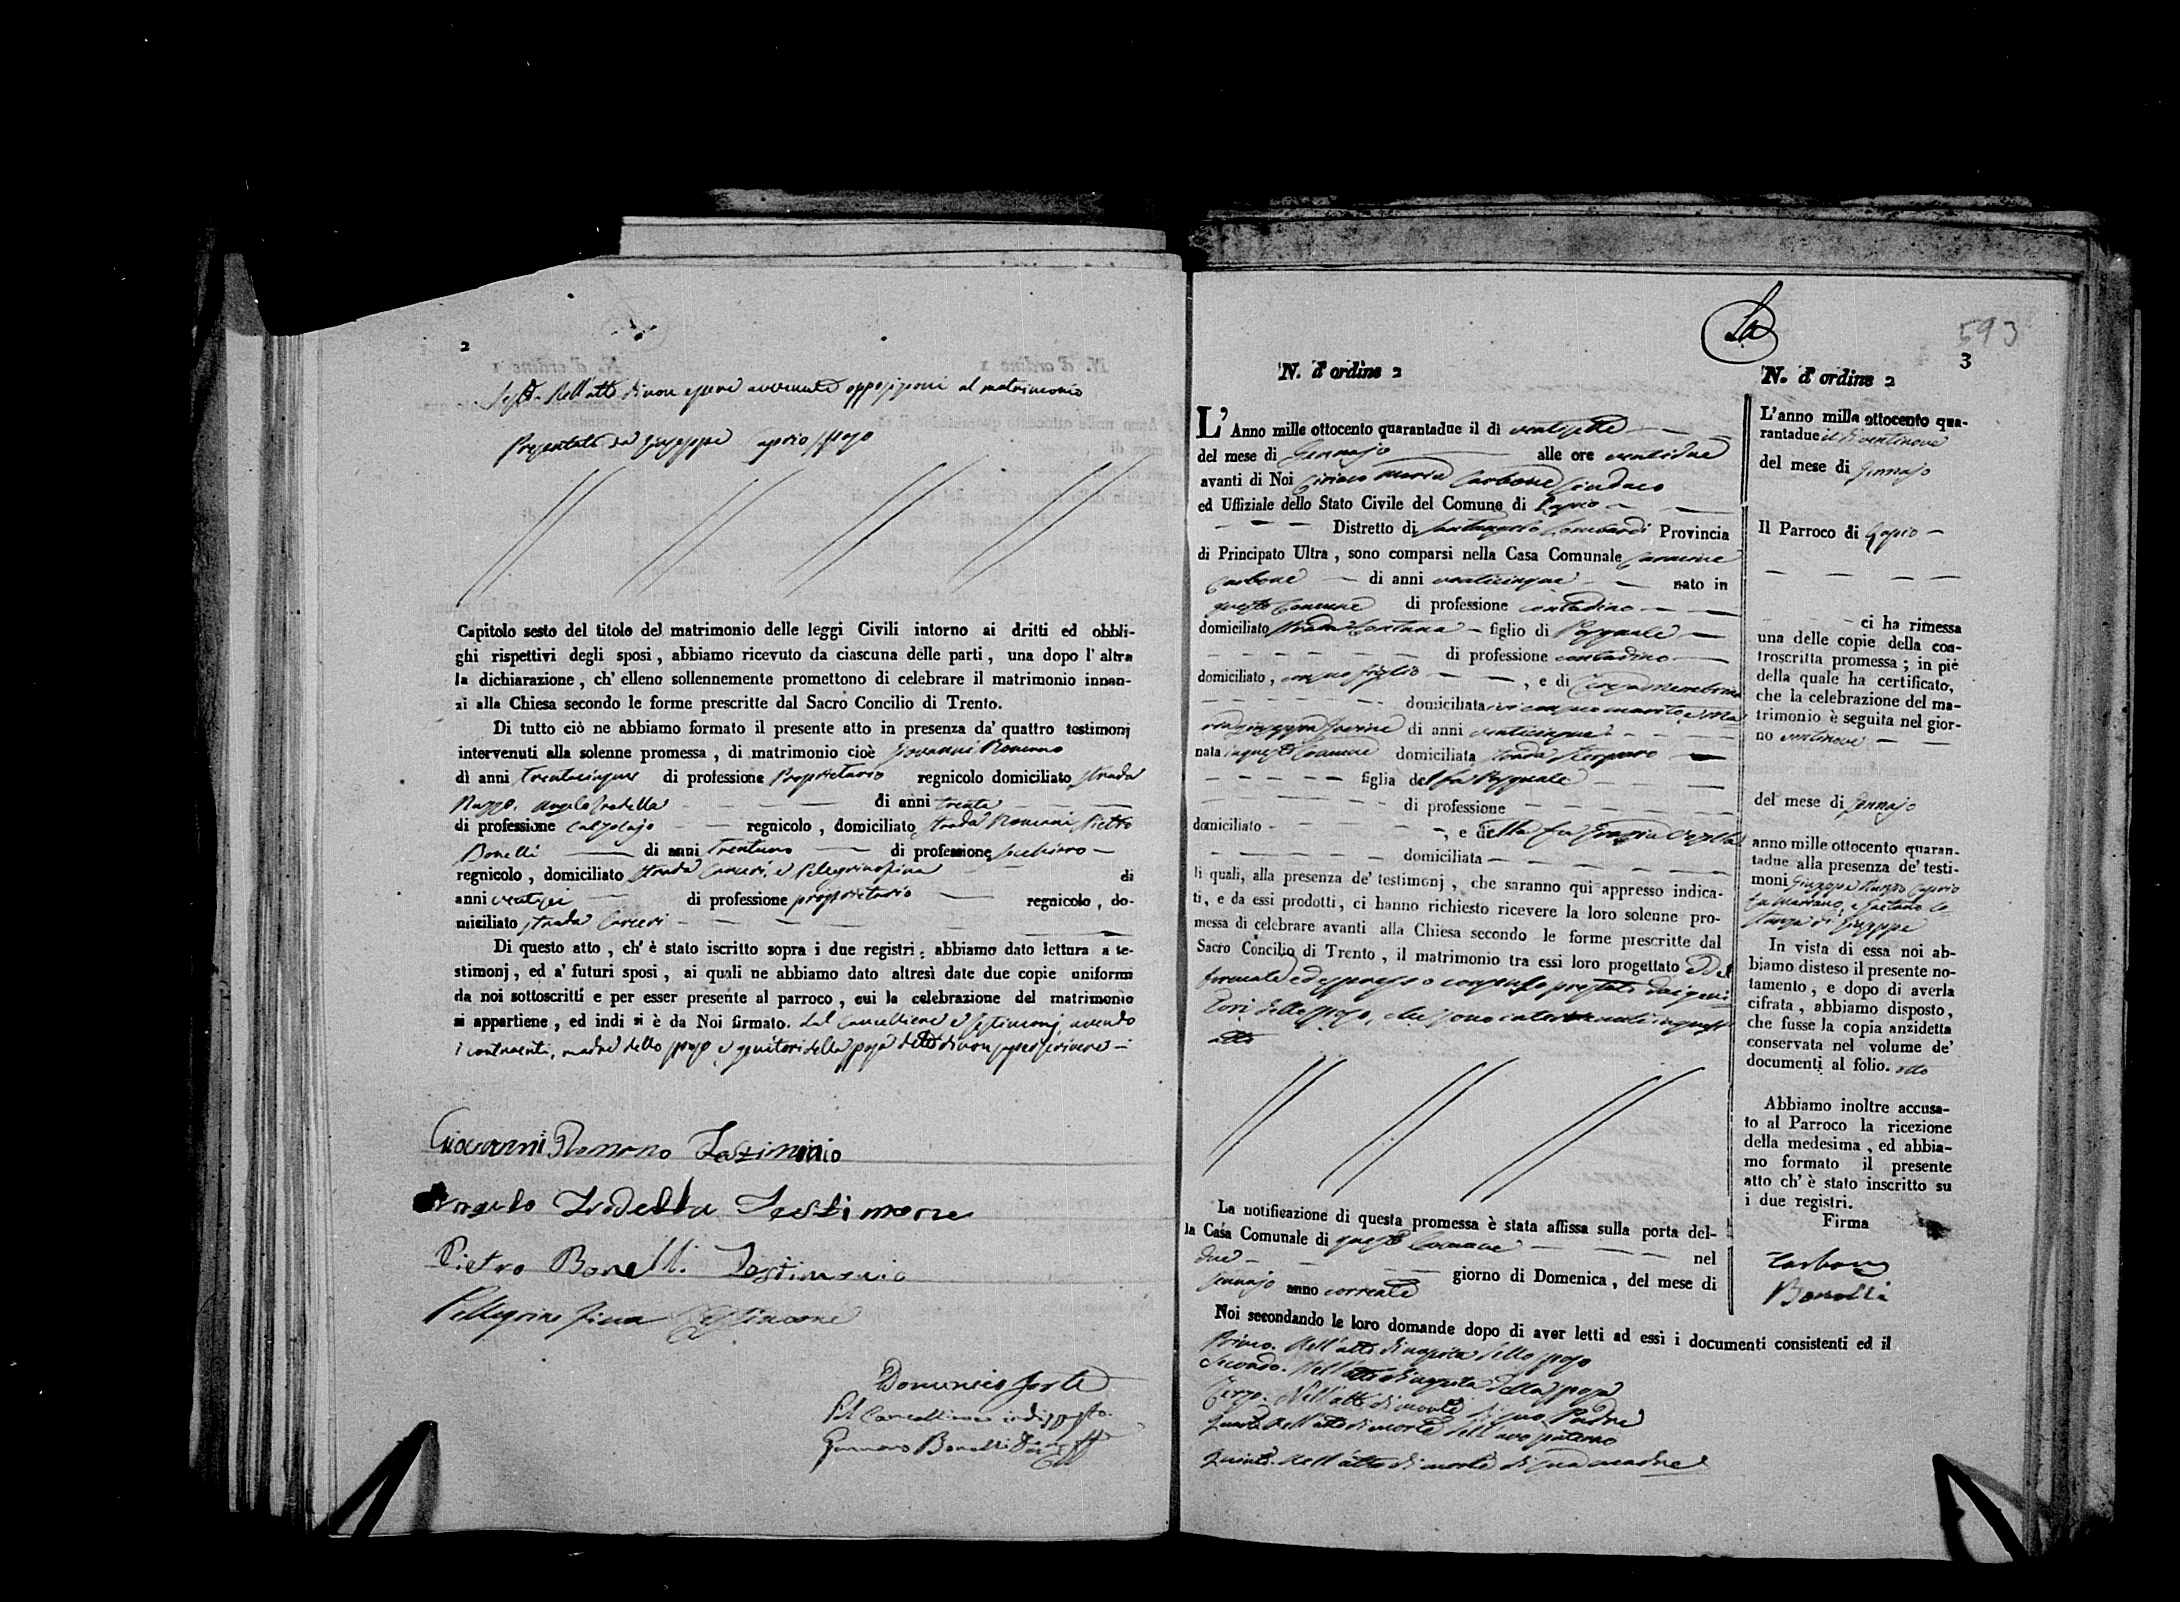 2
Sesto. Dell'atto di non essere avvenute opposizioni al matrimonio
Presentato da Giuseppe Caprio sposo
Capitolo sesto del titolo del matrimonio delle leggi Civili intorno ai dritti ed obbli-
ghi rispettivi degli sposi, abbiamo ricevuto da ciascuna delle parti, una dopo l' altra
la dichiarazione, ch' elleno sollennemente promettono di celebrare il matrimonio innan-
zi alla Chiesa secondo le forme prescritte dal Sacro Concilio di Trento.
Di tutto ciò ne abbiamo formato il presente atto in presenza da' quattro testimonj
intervenuti alla solenne promessa, di matrimonio cioè Giovanni Romano
di anni trentacinque di professione Proprietario regnicolo domiciliato strada
Angelo di anni trenta
di professione Calzolajo regnicolo, domiciliato strada Romani Pietro
Bonelli di anni trentuno di professione
regnicolo, domiciliato strada Carceri, e Pellegrino Fina di
anni ventisei di professione proprietario regnicolo, do-
miciliato strada Carceri
Di questo atto, ch' è stato iscritto sopra i due registri; abbiamo dato lettura a te-
stimonj, ed a' futuri sposi, ai quali ne abbiamo dato altresì date due copie uniformi
da noi sottoscritti e per esser presente al parroco, cui la celebrazione del matrimonio
si appartiene, ed indi si è da Noi firmato. dal Cancelliere e testimonj, avendo
i contraenti, madre dello sposo e genitori della sposa detto di non saper scrivere
Giovanni Romano Testimonio
Angelo Testimone
Pietro Bonelli Testimonio
Pellegrino Fina Testimone
Domenico Forte
Pel Cancelliere indisposto
Gennaro Bonelli
593
3
N. d' ordine 2
L' Anno mille ottocento quarantadue il dì ventisette
del mese di Gennajo alle ore ventidue
avanti di Noi Ciriaco Maria Carbone Sindaco
ed Uffiziale dello Stato Civile del Comune di
Distretto di Santangelo Lombardi Provincia
di Principato Ultra, sono comparsi nella Casa Comunale Carmine
Carbone di anni venticinque nato in
questo Comune di professione contadino
domiciliato strada Fontana figlio di Pasquale
di professione contadino
domiciliato, con suo figlio, e di
domiciliata ivi con suo marito, e Ma
di anni venticinque
nata in questo Comune domiciliata strada
figlia del fu Pasquale
di professione
domiciliato, e della fu Grazia
domiciliata
li quali, alla presenza de' testimonj, che saranno qui appresso indica-
ti, e da essi prodotti, ci hanno richiesto ricevere la loro solenne pro-
messa di celebrare avanti alla Chiesa secondo le forme prescritte dal
Sacro Concilio di Trento, il matrimonio tra essi loro progettato ed il
formale ed espresso consenso prestato dai geni
tori dello sposo, che sono intervenuti in questo
atto
La notificazione di questa promessa è stata affissa sulla porta del-
la Casa Comunale di questo Comune nel
due giorno di Domenica, del mese di
Gennajo anno corrente
Noi secondando le loro domande dopo di aver letti ad essi i documenti consistenti ed il
Primo. Dell'atto di nascita dello sposo
Secondo. Dell'atto di nascita della sposa
Terzo. Dell'atto di morte di suo Padre
Quarto. Dell'atto di morte dell'avo paterno
Quinto. Dell'atto di morte di sua madre
N. d' ordine 2
L'anno mille ottocento qua-
rantadue il dì ventinove
del mese di Gennajo
Il Parroco di
ci ha rimessa
una delle copie della con-
troscritta promessa; in piè
della quale ha certificato,
che la celebrazione del ma-
trimonio è seguita nel gior-
no ventinove
del mese di Gennajo
anno mille ottocento quaran-
tadue alla presenza de' testi-
moni Giuseppe Caprio
fu Mariano, e Gaetano Co
stanza di Giuseppe
In vista di essa noi ab-
biamo disteso il presente no-
tamento, e dopo di averla
cifrata, abbiamo disposto,
che fusse la copia anzidetta
conservata nel volume de'
documenti al folio. otto
Abbiamo inoltre accusa-
to al Parroco la ricezione
della medesima, ed abbia-
mo formato il presente
atto ch' è stato inscritto su
i due registri.
Firma
Carbone
Bonelli